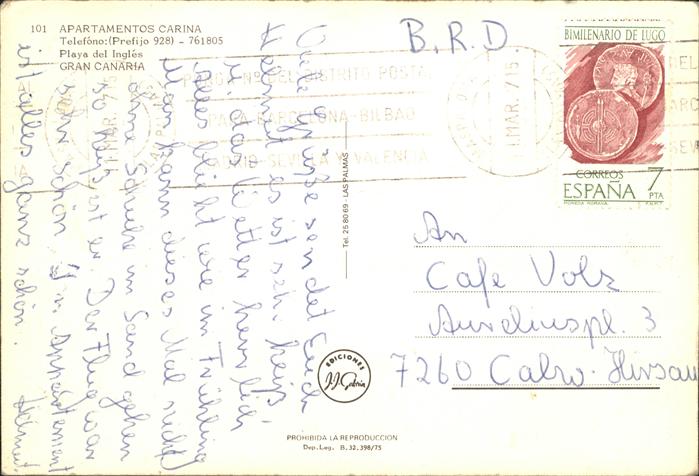 101 APARTAMENTOS CARINA
Telefóno:(Prefijo 928) - 761805
Playa del Inglés
GRAN CANARIA
B.R.D.
BIMILENARIO DE LUGO
CORREOS
ESPAÑA 7
PTA
MONEDA ROMANA F.N.M.T.
PONGA Nº DEL DISTRITO POSTAL
PARA BARCELONA-BILBAO
MADRID-SEVILLA Y VALENCIA
1 MAR. 7 15
Gute Grüsse sendet Euch
Helmut es ist sehr heiß
das Wetter herrlich
alles blüht wie im Frühling
Man kann dieses Mal nicht
ohne Schuhe im Sand gehen
so heiß ist er. Der Flug war
sehr schön. Im Appartement
ist alles ganz schön. Helmut.
Tel. 25 80 69 - LAS PALMAS
An
Cafe Volz
Aureliuspl. 3
7260 Calw-Hirsau
EDICIONES
J.J. Gabria
PROHIBIDA LA REPRODUCCION
Dep. Leg. B. 32.398/75